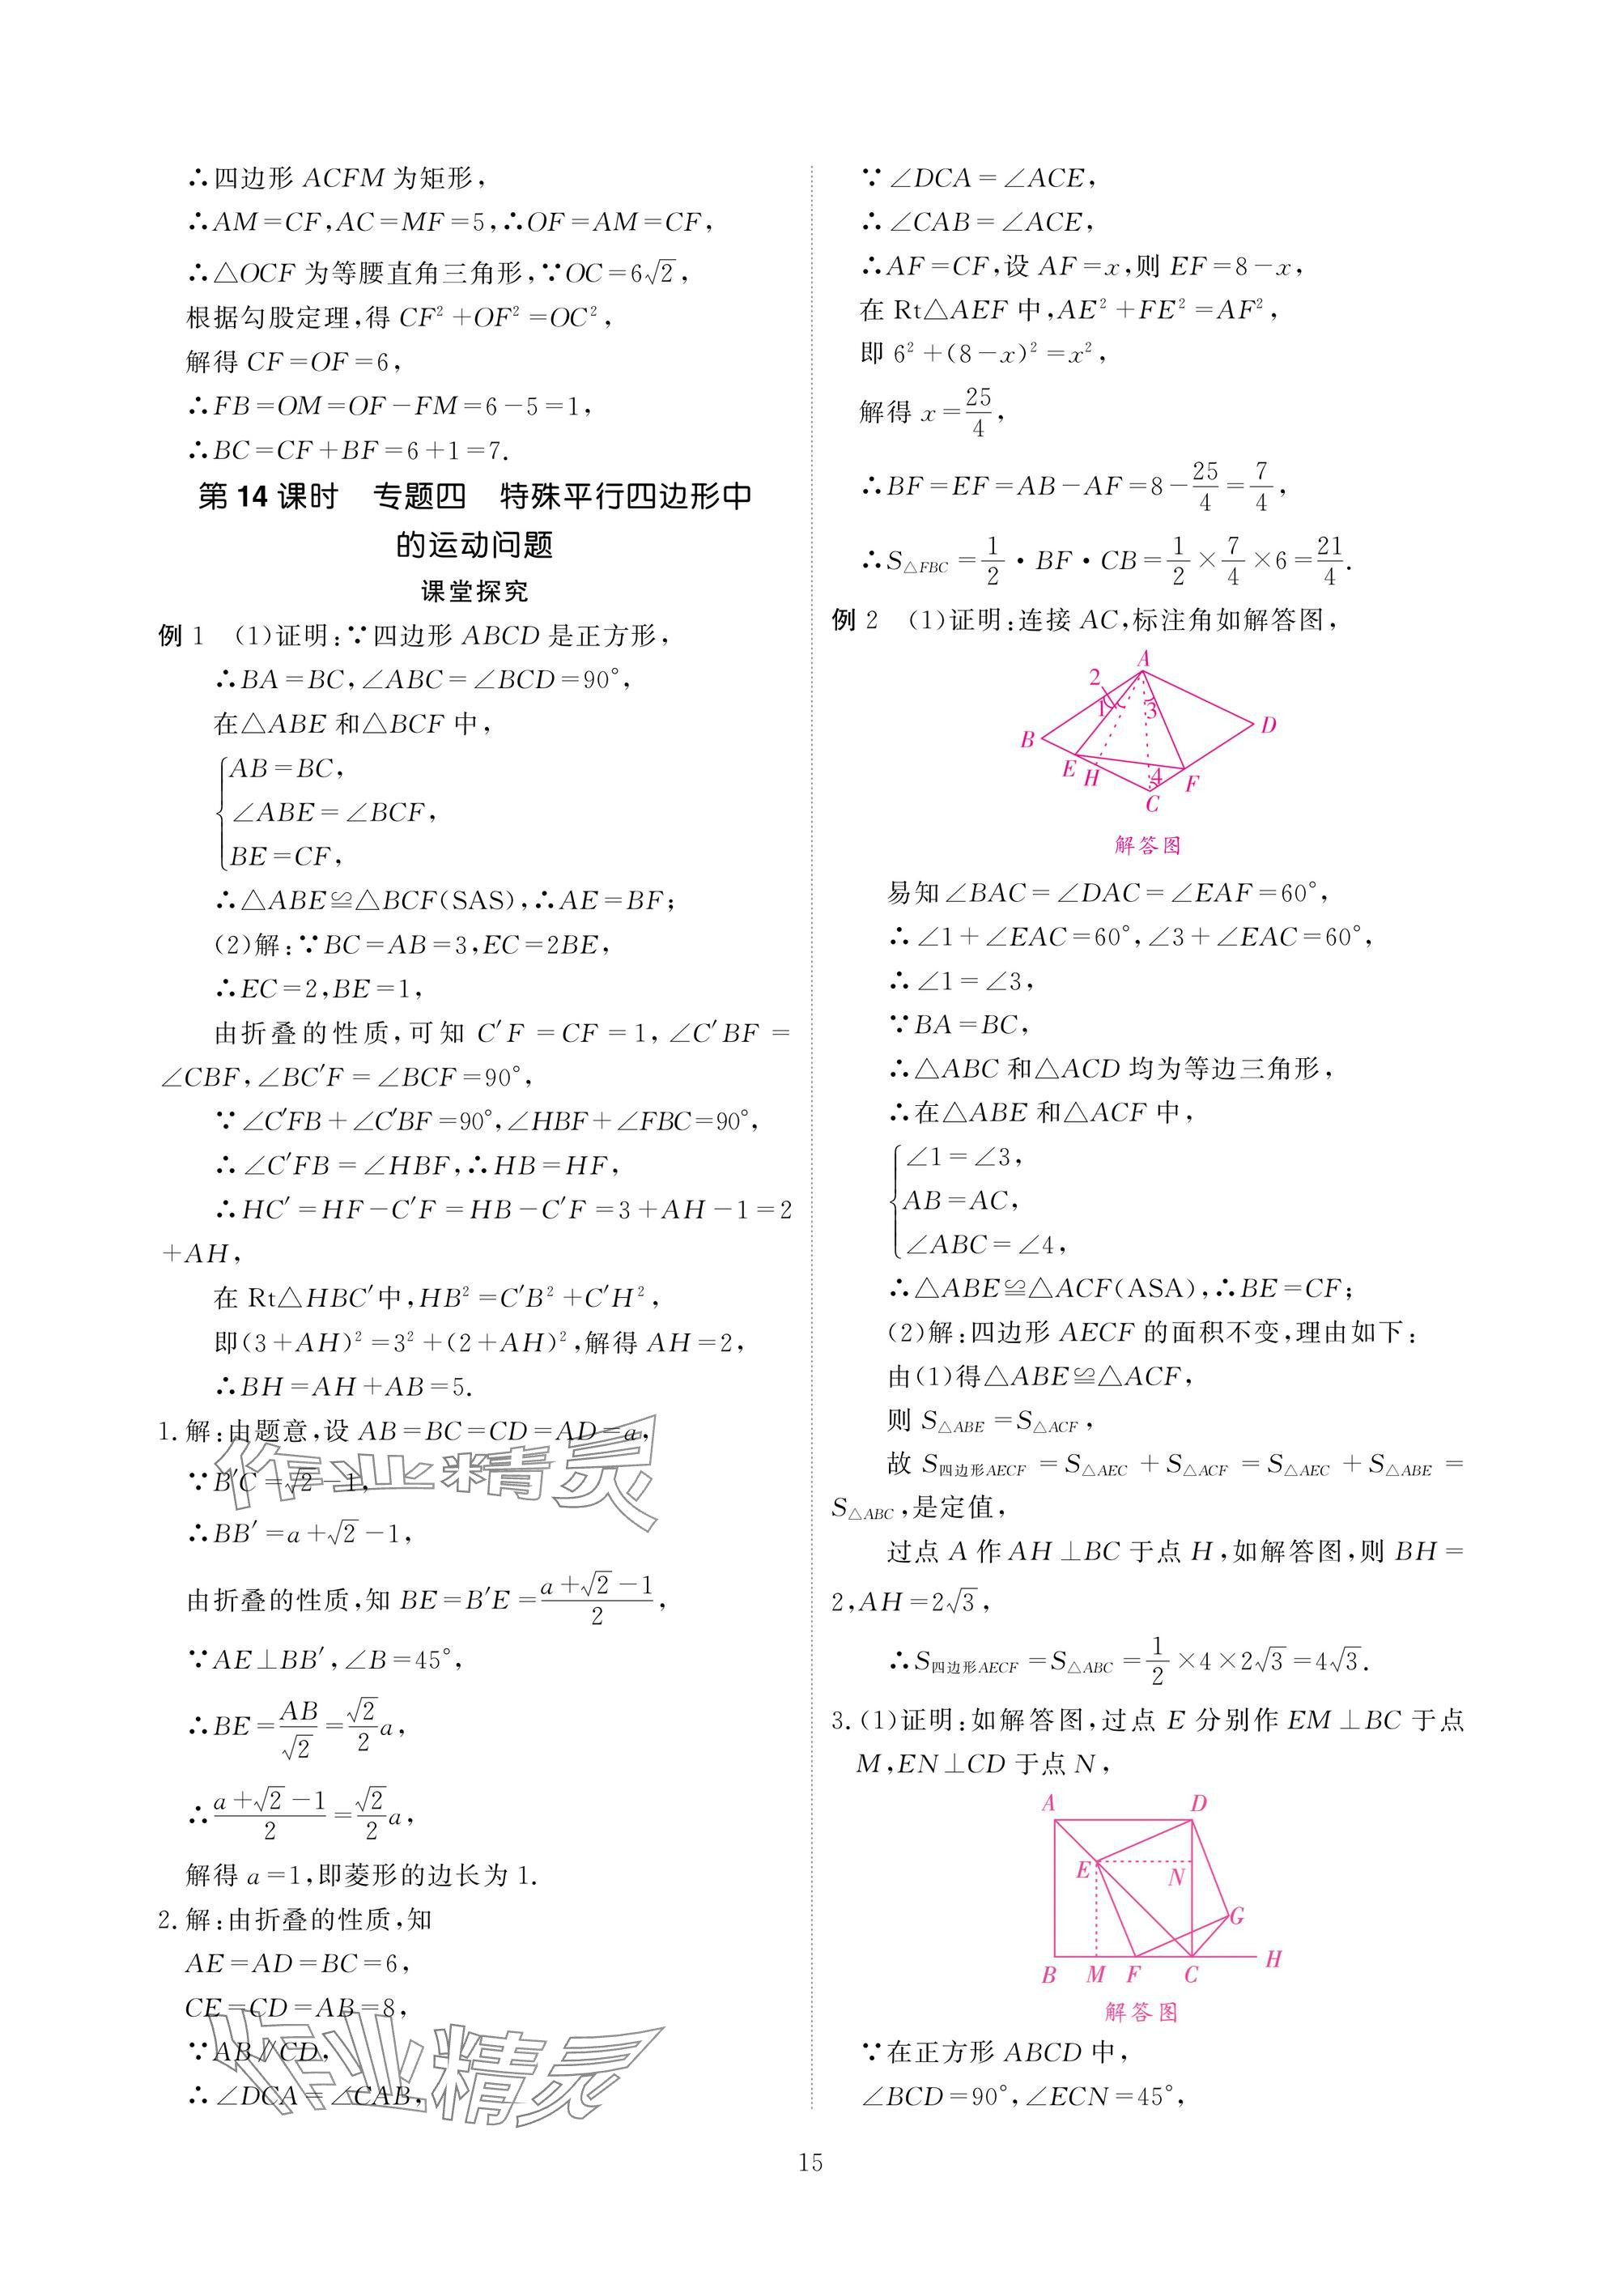 ∴四边形 ACFM 为矩形，
∴AM=CF,AC=MF=5,∴OF=AM=CF,
∴△OCF 为等腰直角三角形,∵OC=6√2,
根据勾股定理,得 CF²+OF²=OC²,
解得 CF=OF=6,
∴FB=OM=OF-FM=6-5=1,
∴BC=CF+BF=6+1=7.
第 14 课时　专题四　特殊平行四边形中
的运动问题
课堂探究
例 1　(1)证明:∵四边形 ABCD 是正方形,
∴BA=BC,∠ABC=∠BCD=90°,
在△ABE 和△BCF 中,
AB=BC,
∠ABE=∠BCF,
BE=CF,
∴△ABE≌△BCF(SAS),∴AE=BF;
(2)解:∵BC=AB=3,EC=2BE,
∴EC=2,BE=1,
由折叠的性质,可知 C′F=CF=1,∠C′BF=
∠CBF,∠BC′F=∠BCF=90°,
∵∠C′FB+∠C′BF=90°,∠HBF+∠FBC=90°,
∴∠C′FB=∠HBF,∴HB=HF,
∴HC′=HF-C′F=HB-C′F=3+AH-1=2
+AH,
在 Rt△HBC′中,HB²=C′B²+C′H²,
即(3+AH)²=3²+(2+AH)²,解得 AH=2,
∴BH=AH+AB=5.
1.解:由题意,设 AB=BC=CD=AD=a,
∵B′C=√2-1,
∴BB′=a+√2-1,
由折叠的性质,知 BE=B′E=(a+√2-1)/2,
∵AE⊥BB′,∠B=45°,
∴BE=AB/√2=√2/2 a,
∴(a+√2-1)/2=√2/2 a,
解得 a=1,即菱形的边长为 1.
2.解:由折叠的性质,知
AE=AD=BC=6,
CE=CD=AB=8,
∵AB∥CD,
∴∠DCA=∠CAB,
作业精灵
作业精灵
∵∠DCA=∠ACE,
∴∠CAB=∠ACE,
∴AF=CF,设 AF=x,则 EF=8-x,
在 Rt△AEF 中,AE²+FE²=AF²,
即 6²+(8-x)²=x²,
解得 x=25/4,
∴BF=EF=AB-AF=8-25/4=7/4,
∴S△FBC=1/2·BF·CB=1/2×7/4×6=21/4.
例 2　(1)证明:连接 AC,标注角如解答图,
A
2
1
3
B
D
E
H
4
F
C
解答图
易知∠BAC=∠DAC=∠EAF=60°,
∴∠1+∠EAC=60°,∠3+∠EAC=60°,
∴∠1=∠3,
∵BA=BC,
∴△ABC 和△ACD 均为等边三角形,
∴在△ABE 和△ACF 中,
∠1=∠3,
AB=AC,
∠ABC=∠4,
∴△ABE≌△ACF(ASA),∴BE=CF;
(2)解:四边形 AECF 的面积不变,理由如下:
由(1)得△ABE≌△ACF,
则 S△ABE=S△ACF,
故 S四边形AECF=S△AEC+S△ACF=S△AEC+S△ABE=
S△ABC,是定值,
过点 A 作 AH⊥BC 于点 H,如解答图,则 BH=
2,AH=2√3,
∴S四边形AECF=S△ABC=1/2×4×2√3=4√3.
3.(1)证明:如解答图,过点 E 分别作 EM⊥BC 于点
M,EN⊥CD 于点 N,
A D
E N
G
B M F C H
解答图
∵在正方形 ABCD 中,
∠BCD=90°,∠ECN=45°,
15